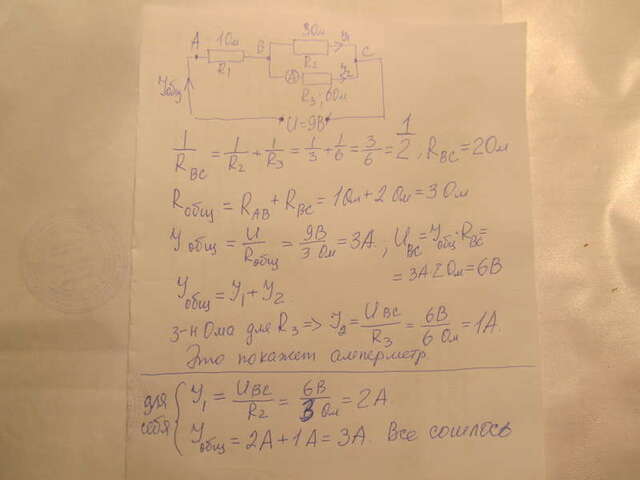 A 1Ом B 3Ом У1 C
R1 R2
Уобщ A У2
R3 = 6Ом
U=9В
1/R_BC = 1/R2 + 1/R3 = 1/3 + 1/6 = 3/6 = 1/2, R_BC = 2Ом
Rобщ = R_AB + R_BC = 1Ом + 2 Ом = 3 Ом
Уобщ = U/Rобщ = 9В/3 Ом = 3А, U_BC = Уобщ · R_BC =
= 3А 2Ом = 6В
Уобщ = У1 + У2
З-н Ома для R3 => У2 = U_BC/R3 = 6В/6 Ом = 1А.
Это покажет амперметр.
для себя { У1 = U_BC/R2 = 6В/3 Ом = 2А
Уобщ = 2А + 1А = 3А. Все сошлось